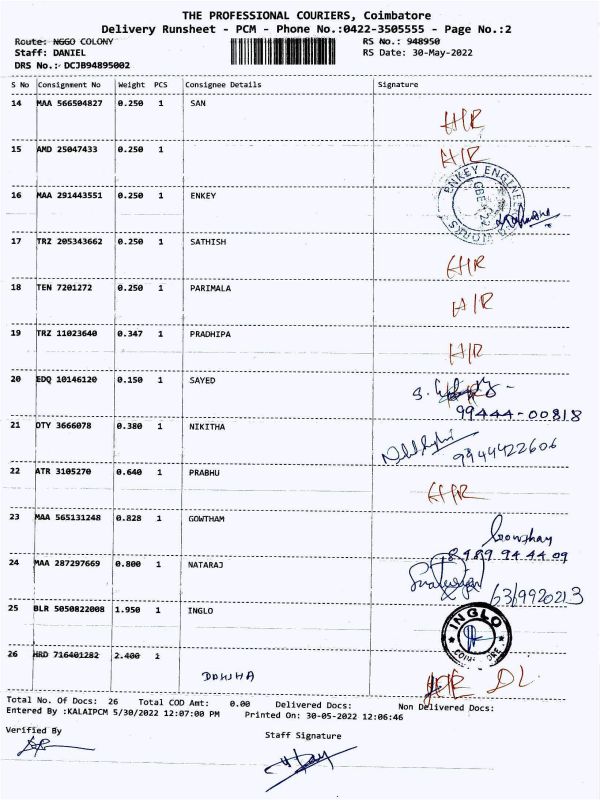 THE PROFESSIONAL COURIERS, Coimbatore
Delivery Runsheet - PCM - Phone No.:0422-3505555 - Page No.:2
Route: NGGO COLONY RS No.: 948950
Staff: DANIEL RS Date: 30-May-2022
DRS No.: DCJB94895002
S No Consignment No Weight PCS Consignee Details Signature
14 MAA 566504827 0.250 1 SAN
15 AMD 25047433 0.250 1
16 MAA 291443551 0.250 1 ENKEY
17 TRZ 205343662 0.250 1 SATHISH
18 TEN 7201272 0.250 1 PARIMALA
19 TRZ 11023640 0.347 1 PRADHIPA
20 EDQ 10146120 0.150 1 SAYED
99444-00818
21 OTY 3666078 0.380 1 NIKITHA
9944422606
22 ATR 3105270 0.640 1 PRABHU
23 MAA 565131248 0.828 1 GOWTHAM
8489944409
24 MAA 287297669 0.800 1 NATARAJ
25 BLR 5050822008 1.950 1 INGLO INGLO
26 HRD 716401282 2.400 1
DL
Total No. Of Docs: 26 Total COD Amt: 0.00 Delivered Docs: Non Delivered Docs:
Entered By :KALAIPCM 5/30/2022 12:07:00 PM Printed On: 30-05-2022 12:06:46
Verified By Staff Signature